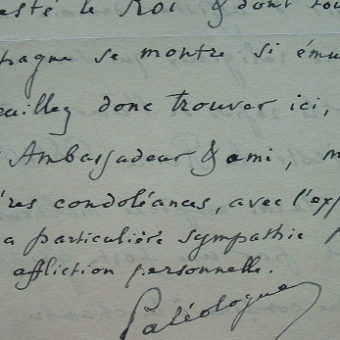 esté le Roi & dont tou
pagne se montre si ému
euillez donc trouver ici,
Ambassadeur & ami, m
res condoléances, avec l'exp
a particulière sympathie p
affliction personnelle.
Paléologue